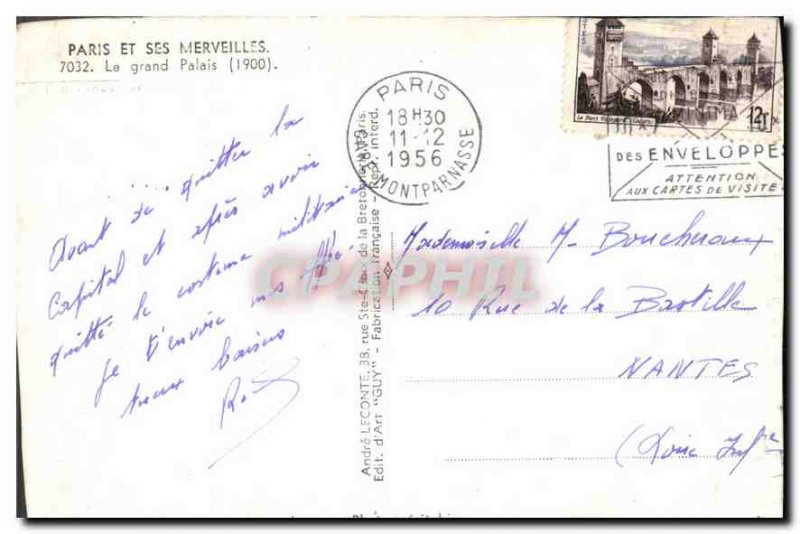 PARIS ET SES MERVEILLES.
7032. Le grand Palais (1900).
Avant de quitter la
Capital et après avoir
quitté le costume militaire
Je t'envoie mes affec
tueux baisers
André LECONTE, 38, rue Ste-Croix de la Bretonnerie, Paris.
Edit. d'Art "GUY" - Fabrication française - Repr. interd.
PARIS
18H30
11-12
1956
MONTPARNASSE
POSTES
Le Pont Valentré Cahors
12F
DES ENVELOPPES
ATTENTION
AUX CARTES DE VISITE
Mademoiselle M. Boucheraux
10 Rue de la Bastille
NANTES
(Loire Infre
CPAPHIL